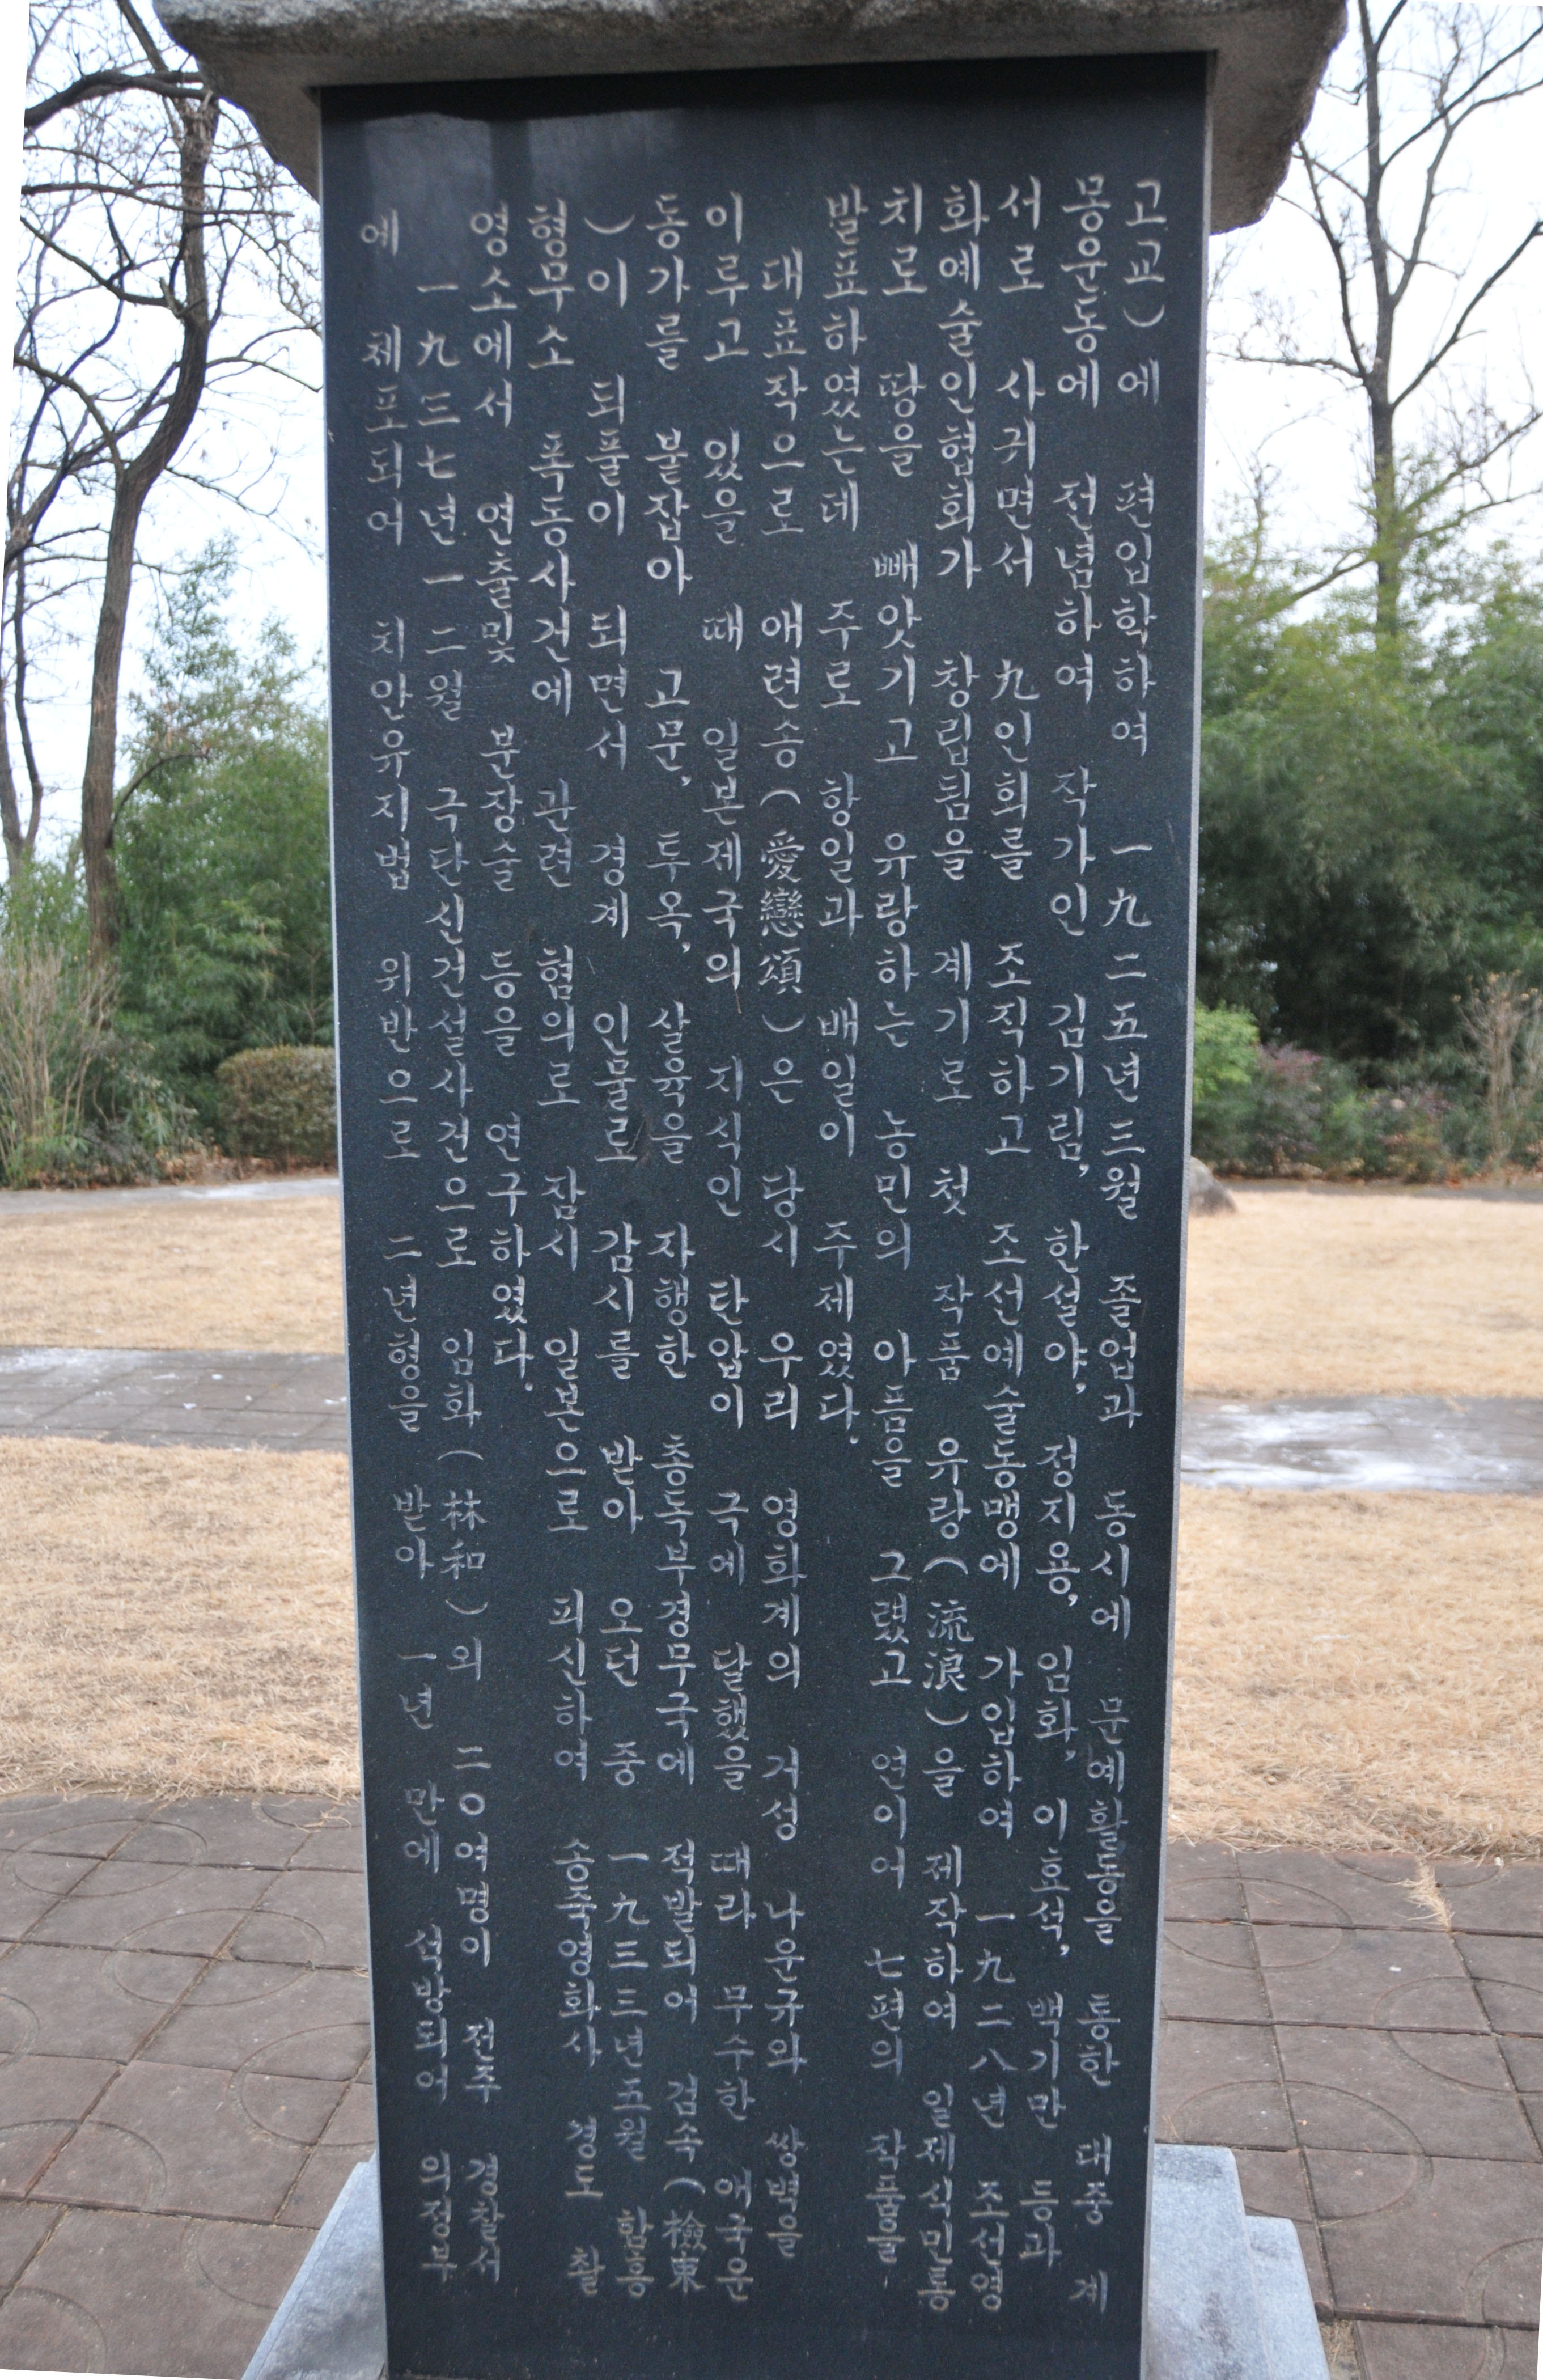 고교)에 편입학하여 一九二五년三월 졸업과 동시에 문예활동을 통한 대중 계
몽운동에 전념하여 작가인 김기림, 한설야, 정지용, 임화, 이효석, 백기만 등과
서로 사귀면서 九인회를 조직하고 조선예술동맹에 가입하여 一九二八년 조선영
화예술인협회가 창립됨을 계기로 첫 작품 유랑(流浪)을 제작하여 일제식민통
치로 땅을 빼앗기고 유랑하는 농민의 아픔을 그렸고 연이어 七편의 작품을
발표하였는데 주로 항일과 배일이 주제였다.
대표작으로 애련송(愛戀頌)은 당시 우리 영화계의 거성 나운규와 쌍벽을
이루고 있을 때 일본제국의 지식인 탄압이 극에 달했을 때라 무수한 애국운
동가를 붙잡아 고문, 투옥, 살육을 자행한 총독부경무국에 적발되어 검속(檢束
)이 되풀이 되면서 경계 인물로 감시를 받아 오던 중 一九三三년五월 함흥
형무소 폭동사건에 관련 혐의로 잠시 일본으로 피신하여 송죽영화사 경도 촬
영소에서 연출및 분장술 등을 연구하였다.
一九三七년一二월 극단신건설사건으로 임화(林和)외 二○여명이 전주 경찰서
에 체포되어 치안유지법 위반으로 二년형을 받아 一년 만에 석방되어 의정부